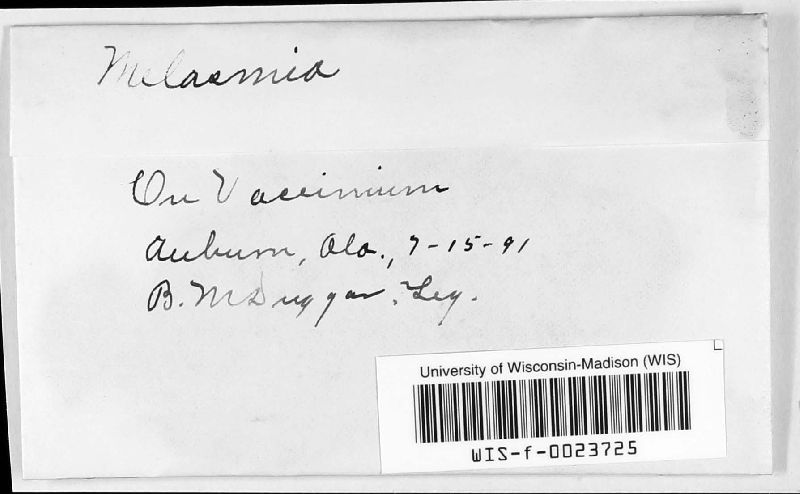 Melasmia
On Vaccinium
Auburn, Ala., 7-15-91
B. M Duggar. Leg.
University of Wisconsin-Madison (WIS)
WIS-f-0023725